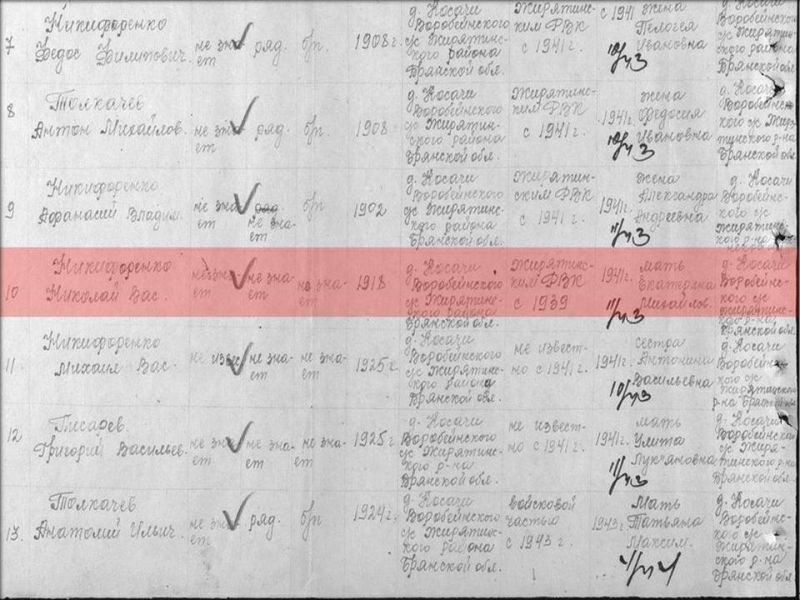 7 Никифоренко Федос Филипович. не зна ет ряд. бп. 1908 г. д. Косачи Воробейнского с/с Жирятинс- кого района Брянской обл. Жирятинс- ким РВК с 1941 г. с 1941 жена Пелогея Ивановна Воробейн- ского с/с
8 Толкачев Антон Михайлов. не зна ет ряд. бп. 1908 д. Косачи Воробейнского с/с Жирятин- ского района Брянской обл. Жирятинс- ким РВК с 1941 г. 1941 г. жена Федосия Ивановна д. Косачи Воробейн- ского с/с Жиря- тинского р-на Брянской обл.
9 Никифоренко Афанасий Владим. не зна ет ряд. не зна- ет бп. 1902 д. Косачи Воробейнского с/с Жирятинс- кого района Брянской обл. Жирятин- ским РВК с 1941 г. 1941 г. жена Александра Андреевна д. Косачи Воробейн- ского с/с Жирятинс- кого р-на
10 Никифоренко Николай Вас. не зна ет не зна- ет не зна- ет 1918 д. Косачи Воробейнского с/с Жирятинс- кого района Брянской обл. Жирятинс- ким РВК с 1939 1941 г. мать Екатерина Михайлов. д. Косачи Воробейн- ского с/с Жирятинс- кого р-на Брянской обл.
11. Никифоренко Михаил Вас. не извес не зна- ет не зна- ет 1925 г. д. Косачи Воробейнского с/с Жирятинс- кого района Брянской обл. не извест- но с 1941 г. 1941 г. сестра Антонина Васильевна д. Косачи Воробейн- ского с/с Жирятинского р-на
12 Писарев Григорий Васильев. не зна- ет не зна- ет не зна- ет 1925 г. д. Косачи Воробейнского с/с Жирятинс- кого р-на Брянской обл. не извест- но с 1941 г. 1941 г. мать Улита Лукьяновна д. Косачи Воробейн- ского с/с Жиря- тинского р-на Брянской обл.
13. Толкачев Анатолий Ильич. не зна ет ряд. бп. 1924 г. д. Косачи Воробейнского с/с Жирятинс- кого района Брянской обл. войсковой частью с 1943 г. 1943 г. Мать Татьяна Максим. д. Косачи Воробейн- ского с/с Жирятинс- кого р-на Брянской обл.